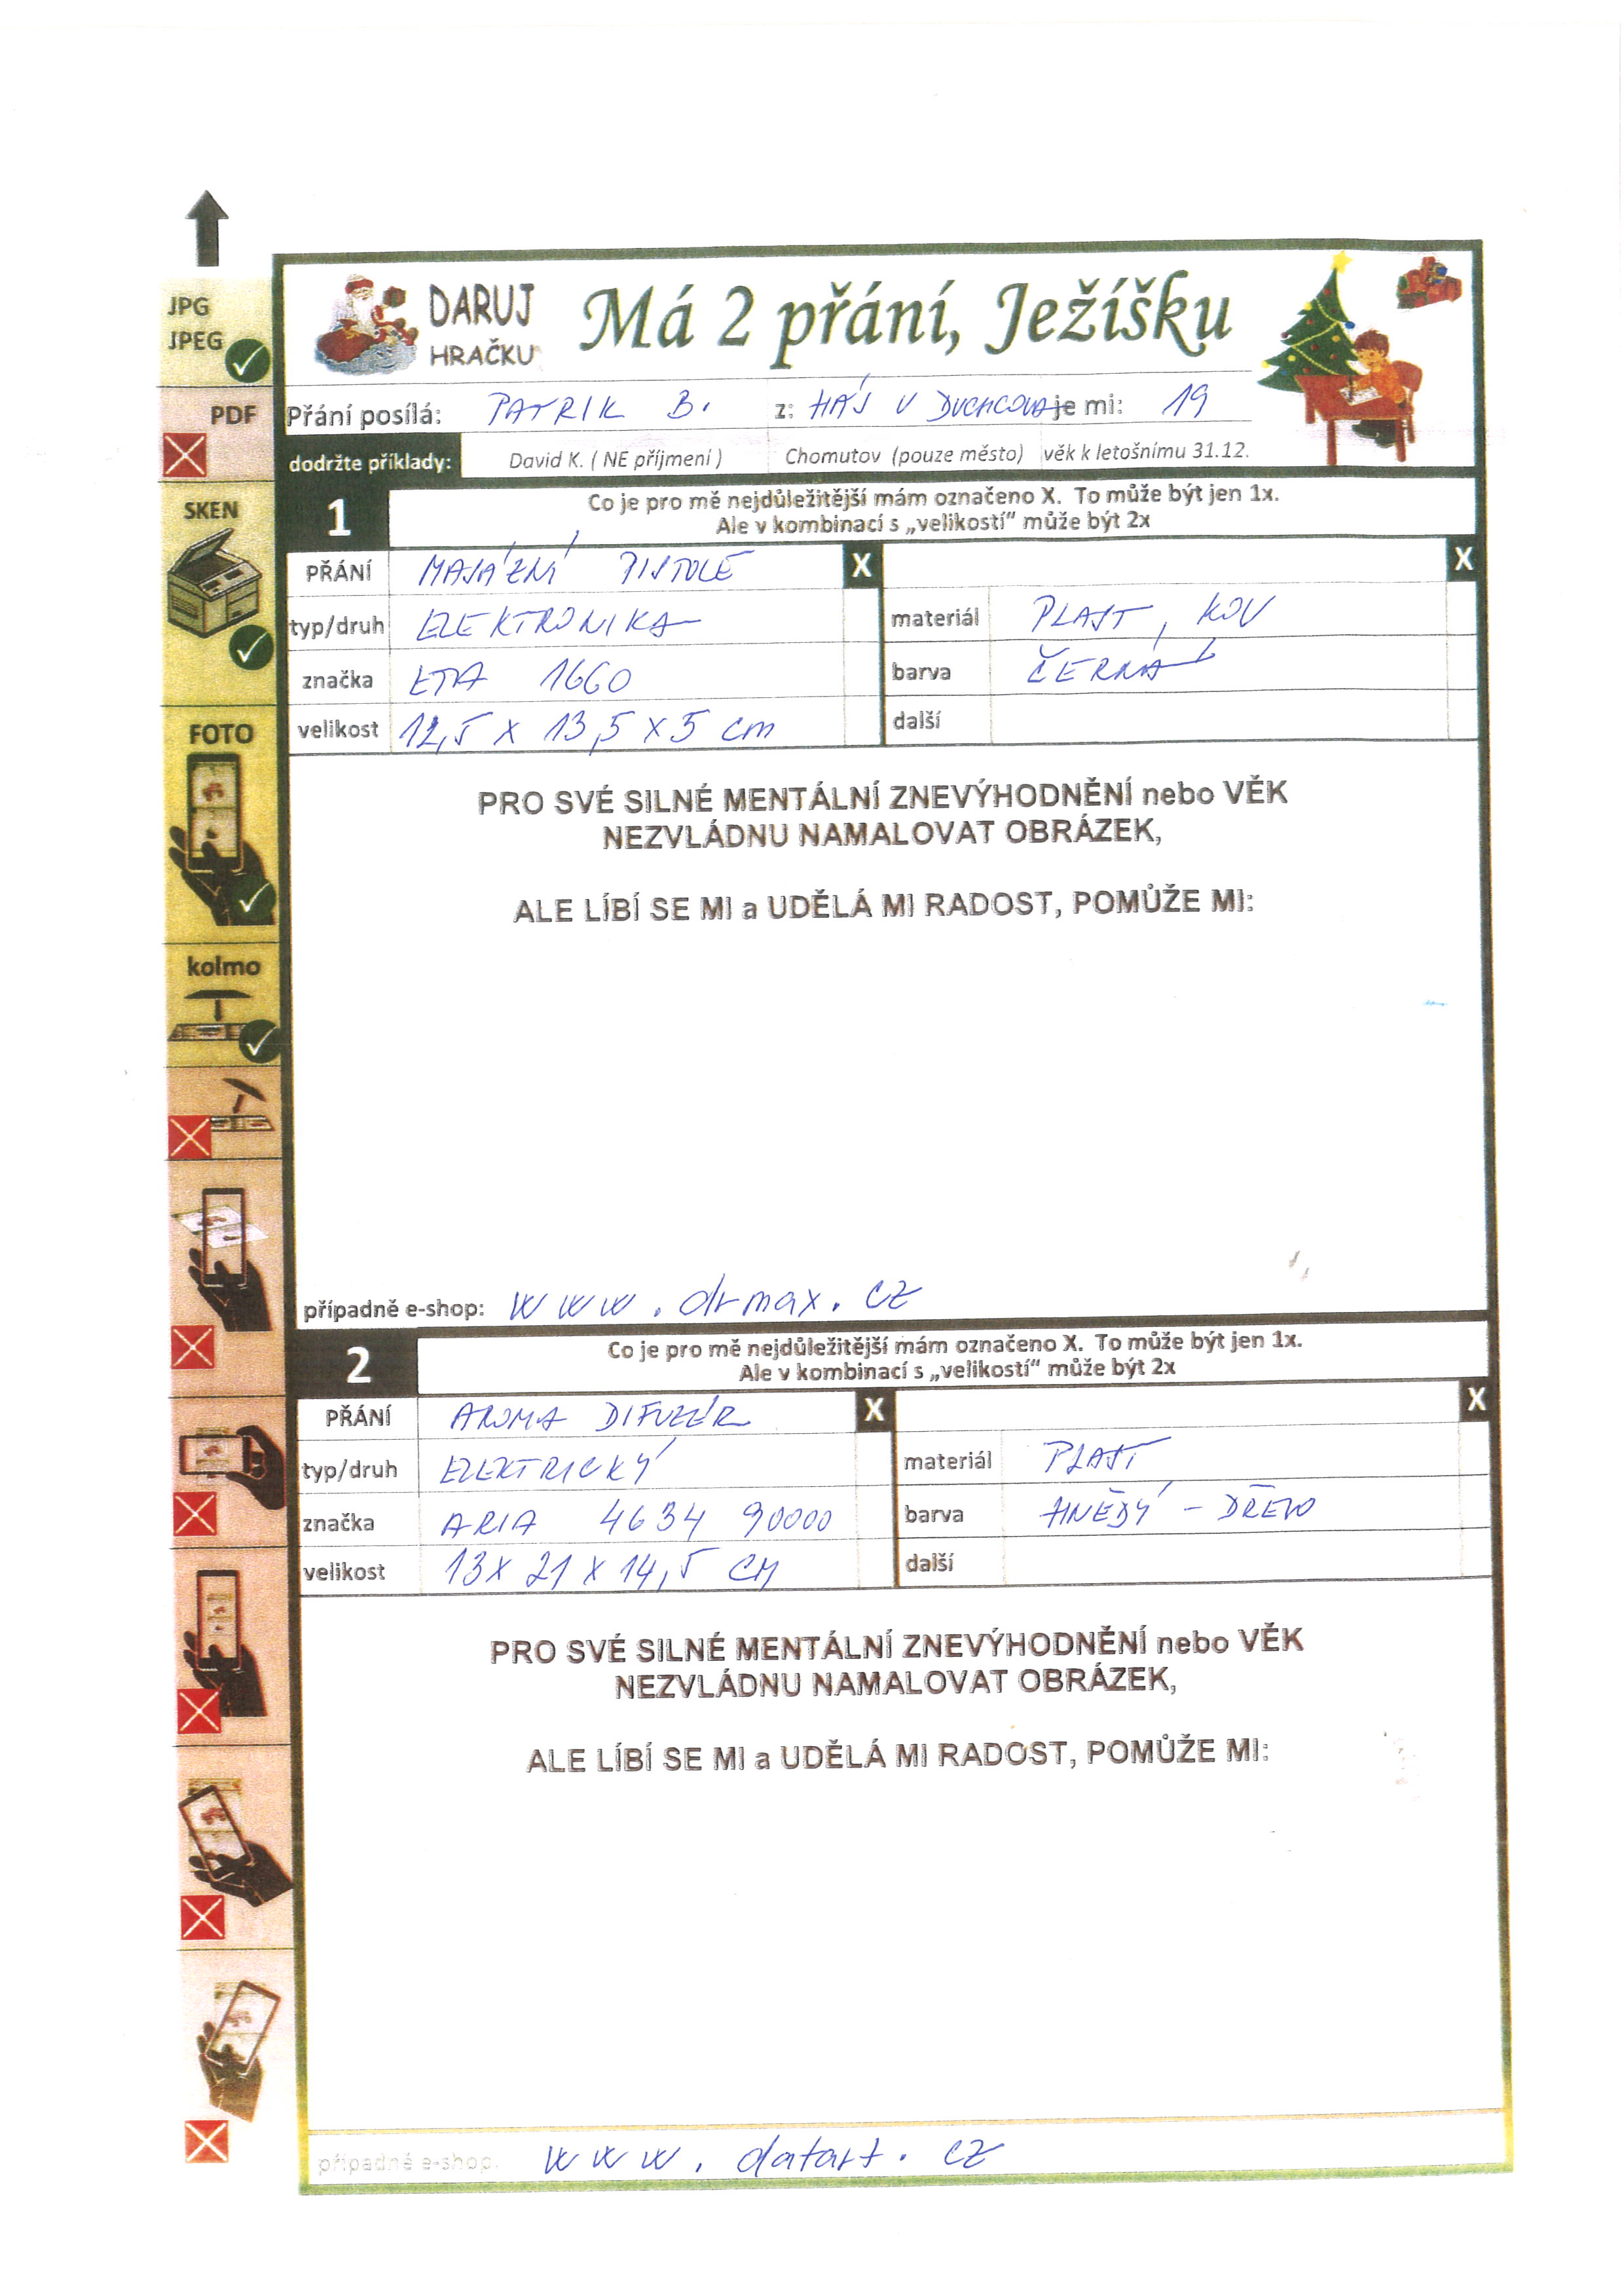 JPG
JPEG
PDF
SKEN
FOTO
kolmo
DARUJ
HRAČKU
Má 2 přání, Ježíšku
Přání posílá: PATRIK B. z: HÁJ U DUCHCOVA je mi: 19
dodržte příklady: David K. ( NE příjmení ) Chomutov (pouze město) věk k letošnímu 31.12.
1
Co je pro mě nejdůležitější mám označeno X. To může být jen 1x.
Ale v kombinací s „velikostí“ může být 2x
PŘÁNÍ MASÁŽNÍ PISTOLE X X
typ/druh ELEKTRONIKA materiál PLAST, KOV
značka ETA 1660 barva ČERNÁ
velikost 12,5 x 13,5 x 5 cm další
PRO SVÉ SILNÉ MENTÁLNÍ ZNEVÝHODNĚNÍ nebo VĚK
NEZVLÁDNU NAMALOVAT OBRÁZEK,
ALE LÍBÍ SE MI a UDĚLÁ MI RADOST, POMŮŽE MI:
případně e-shop: www.drmax.cz
2
Co je pro mě nejdůležitější mám označeno X. To může být jen 1x.
Ale v kombinací s „velikostí“ může být 2x
PŘÁNÍ AROMA DIFUZÉR X X
typ/druh ELEKTRICKÝ materiál PLAST
značka ARIA 4634 90000 barva HNĚDÝ - DŘEVO
velikost 13 x 21 x 14,5 CM další
PRO SVÉ SILNÉ MENTÁLNÍ ZNEVÝHODNĚNÍ nebo VĚK
NEZVLÁDNU NAMALOVAT OBRÁZEK,
ALE LÍBÍ SE MI a UDĚLÁ MI RADOST, POMŮŽE MI:
případně e-shop: www.datart.cz